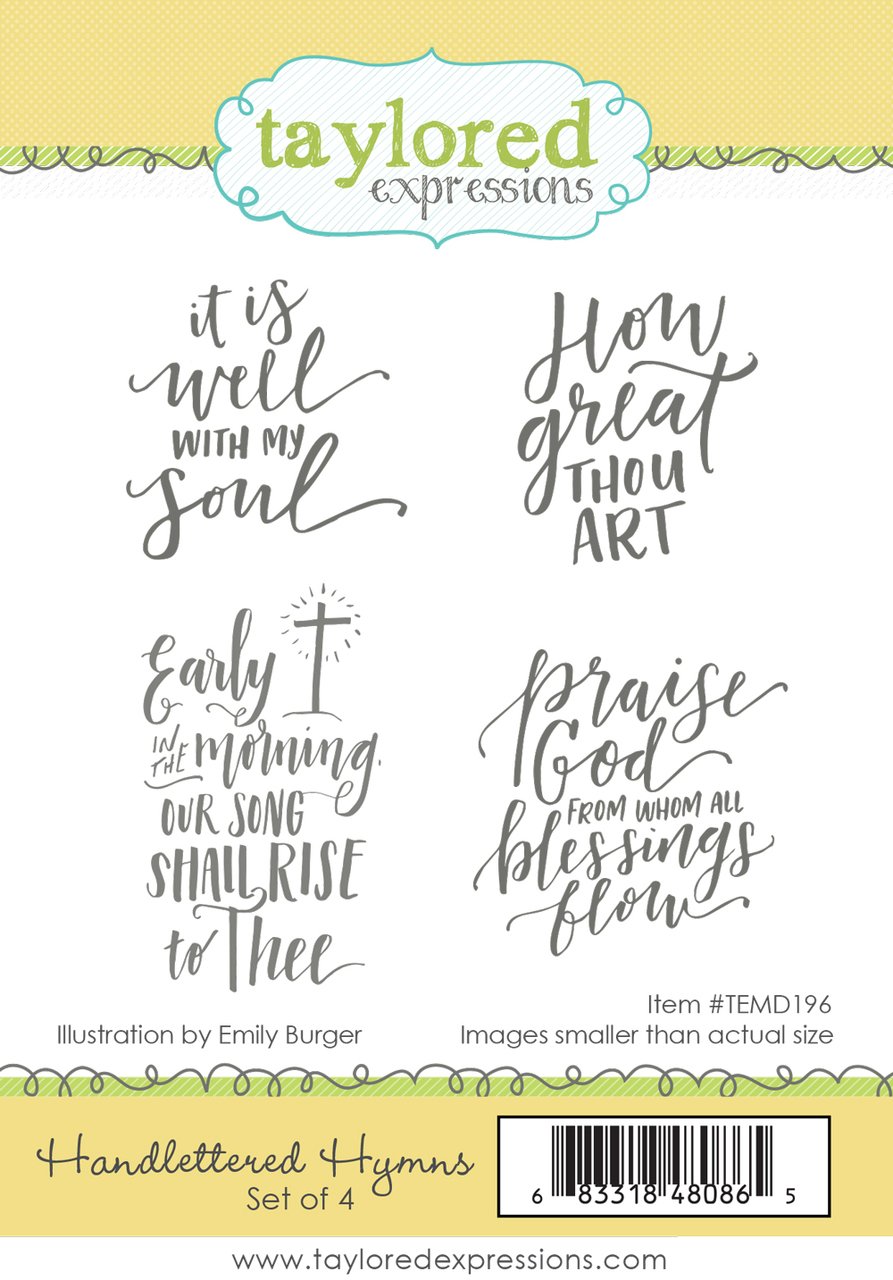 taylored
expressions
it is
well
WITH MY
soul
How
great
THOU
ART
Early
IN
THE morning,
OUR SONG
SHALL RISE
to Thee
praise
God
FROM WHOM ALL
blessings
flow
Item #TEMD196
Illustration by Emily Burger
Images smaller than actual size
Handlettered Hymns
Set of 4
6 83318 48086 5
www.tayloredexpressions.com